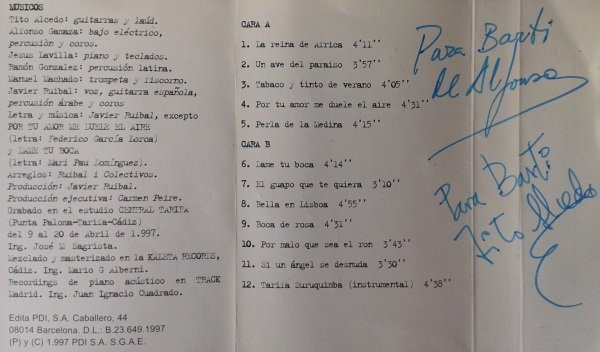 MUSICOS
Tito Alcedo: guitarras y laúd.
Alfonso Gamaza: bajo eléctrico,
percusión y coros.
Jesus Lavilla: piano y teclados.
Ramón González: percusión latina.
Manuel Machado: trompeta y fiscorno.
Javier Ruibal: voz, guitarra española,
percusión árabe y coros
Letra y música: Javier Ruibal, excepto
POR TU AMOR ME DUELE EL AIRE
(letra: Federico García Lorca)
y LAME TU BOCA
(letra: Mari Pau Domínguez).
Arreglos: Ruibal i Colectivos.
Producción: Javier Ruibal.
Producción ejecutiva: Carmen Peire.
Grabado en el estudio CENTRAL TARIFA
(Punta Paloma-Tarifa-Cádiz)
del 9 al 20 de Abril de 1.997.
Ing. José M Sagrista.
Mezclado y masterizado en la KALETA RECORDS,
Cádiz. Ing. Mario G Alberni.
Recordings de piano acústico en TRACK
Madrid. Ing. Juan Ignacio Cuadrado.
Edita PDI, S.A. Caballero, 44
08014 Barcelona. D.L.: B.23.649.1997
(P) y (C) 1.997 PDI S.A. S.G.A.E.
CARA A
1. La reina de Africa 4'11''
2. Un ave del paraiso 3'57''
3. Tabaco y tinto de verano 4'05''
4. Por tu amor me duele el aire 4'31''
5. Perla de la Medina 4'15''
CARA B
6. Lame tu boca 4'14''
7. El guapo que te quiera 3'10''
8. Bella en Lisboa 4'55''
9. Boca de rosa 4'31''
10. Por malo que sea el ron 3'43''
11. Si un ángel se desnuda 3'30''
12. Tarifa Suruquimba (instrumental) 4'38''
Para Barti
de Alfonso
Para Barti
Tito Alcedo